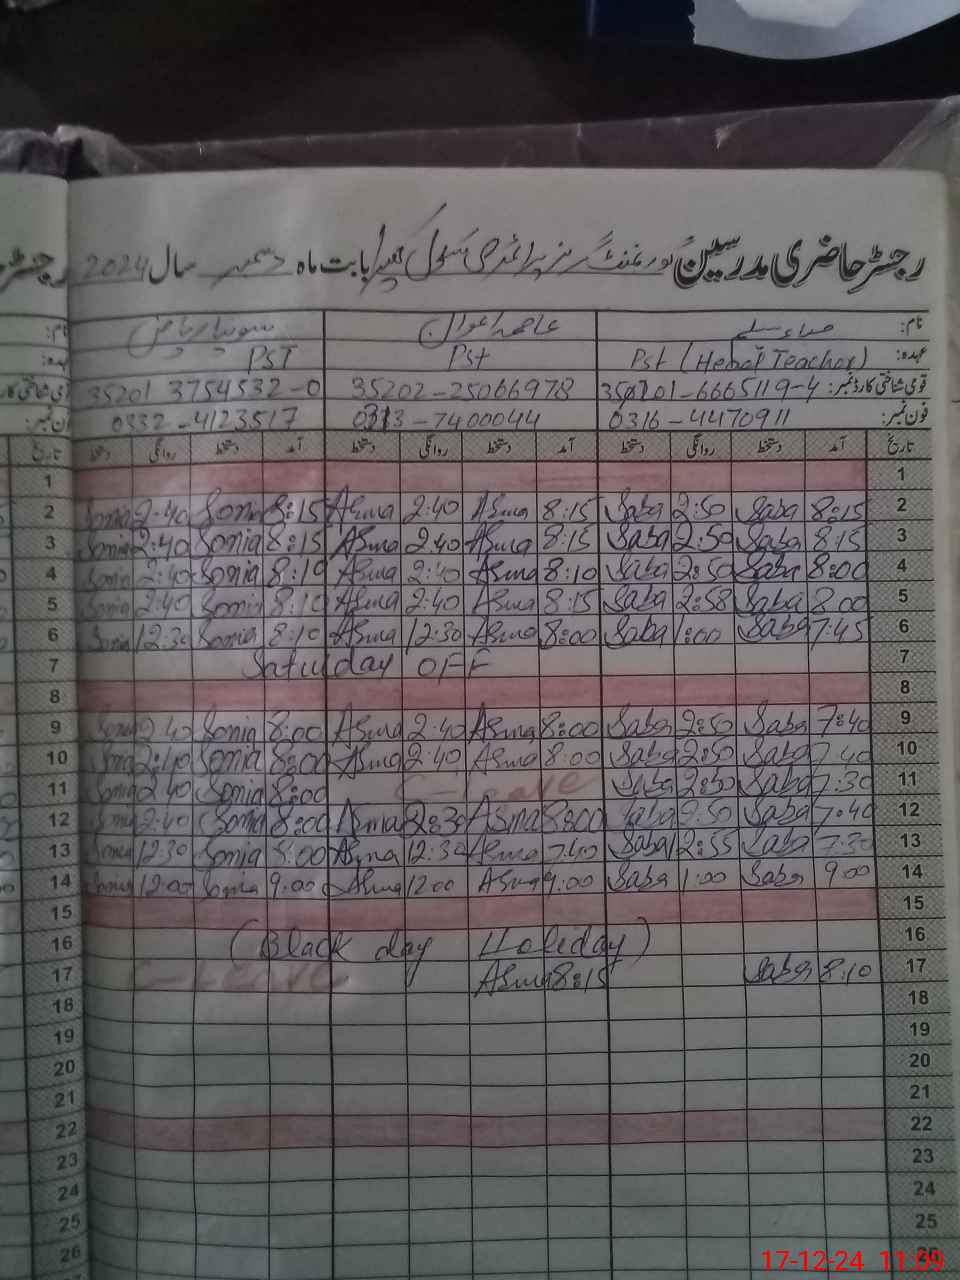 رجسٹر حاضری مدرسین گورنمنٹ گرلز پرائمری سکول بابت ماہ دسمبر سال 2024
نام: صباء سلیم عاصمہ اعوان سونیا ریاض
عہدہ: Pst (Head Teacher) Pst PST
قومی شناختی کارڈ نمبر: 35202-25066978 35201 3754532-0
فون نمبر: 0316-4470911 0313-7400044 0332-4123517
تاریخ آمد دستخط روانگی دستخط آمد دستخط روانگی دستخط آمد دستخط روانگی دستخط تاریخ
1 1
2 Sonia 2:40 Sonia 8:15 Asma 2:40 Asma 8:15 Saba 2:50 Saba 8:15 2
3 Sonia 2:40 Sonia 8:15 Asma 2:40 Asma 8:15 Saba 2:50 Saba 8:15 3
4 Sonia 2:40 Sonia 8:10 Asma 2:40 Asma 8:10 Saba 2:50 Saba 8:00 4
5 Sonia 2:40 Sonia 8:10 Asma 2:40 Asma 8:15 Saba 2:58 Saba 8:00 5
6 Sonia 12:30 Sonia 8:10 Asma 12:30 Asma 8:00 Saba 1:00 Saba 7:45 6
7 Saturday OFF 7
8 8
9 Sonia 2:40 Sonia 8:00 Asma 2:40 Asma 8:00 Saba 2:50 Saba 7:40 9
10 Sonia 2:40 Sonia 8:00 Asma 2:40 Asma 8:00 Saba 2:50 Saba 7:40 10
11 Sonia 2:40 Sonia 8:00 C-Leave Saba 2:50 Saba 7:30 11
12 Sonia 2:40 Sonia 8:00 Asma 2:30 Asma 8:00 Saba 2:50 Saba 7:40 12
13 Sonia 12:30 Sonia 8:00 Asma 12:30 Asma 7:40 Saba 12:55 Saba 7:30 13
14 Sonia 12:00 Sonia 9:00 Asma 12:00 Asma 9:00 Saba 1:00 Saba 9:00 14
15 15
16 (Black day Holiday) 16
17 C-Leave Asma 8:15 Saba 8:10 17
18 18
19 19
20 20
21 21
22 22
23 23
24 24
25 25
26 26
17-12-24 11:09